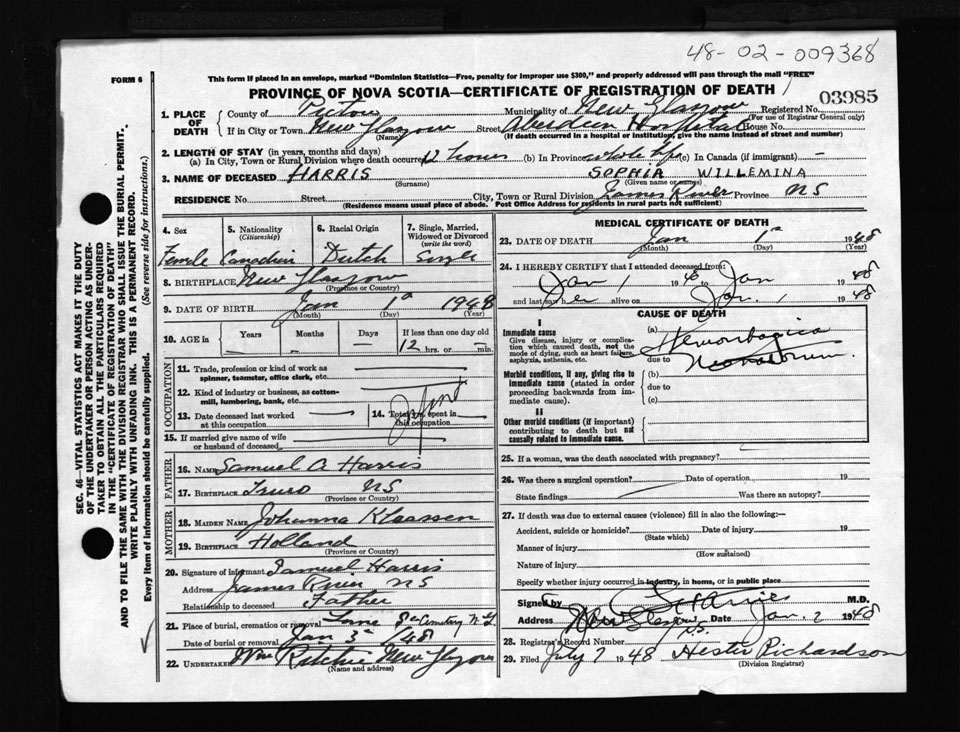 48-02-009368
This form if placed in an envelope, marked "Dominion Statistics—Free, penalty for improper use $300," and properly addressed will pass through the mail "FREE"
FORM 6
PROVINCE OF NOVA SCOTIA—CERTIFICATE OF REGISTRATION OF DEATH
03985
1. PLACE OF DEATH County of Pictou Municipality of New Glasgow Registered No. (For use of Registrar General only)
If in City or Town New Glasgow (Name) Street Aberdeen Hospital House No.
(If death occurred in a hospital or institution, give the name instead of street and number)
2. LENGTH OF STAY (in years, months and days)
(a) In City, Town or Rural Division where death occurred 12 hours (b) In Province whole life (c) In Canada (if immigrant) –
3. NAME OF DECEASED HARRIS (Surname) SOPHIA WILLEMINA (Given name or names)
RESIDENCE No. Street City, Town or Rural Division James River Province NS
(Residence means usual place of abode. Post Office Address for residents in rural parts not sufficient)
4. Sex Female
5. Nationality (Citizenship) Canadian
6. Racial Origin Dutch
7. Single, Married, Widowed or Divorced (write the word) Single
8. BIRTHPLACE New Glasgow (Province or Country)
9. DATE OF BIRTH Jan (Month) 1st (Day) 1948 (Year)
10. AGE in Years – Months – Days – If less than one day old 12 hrs. or – min.
OCCUPATION
11. Trade, profession or kind of work as spinner, teamster, office clerk, etc.
12. Kind of industry or business, as cotton-mill, lumbering, bank, etc.
Infant
13. Date deceased last worked at this occupation
14. Total yrs. spent in this occupation
15. If married give name of wife or husband of deceased
FATHER
16. NAME Samuel A Harris
17. BIRTHPLACE Truro NS (Province or Country)
MOTHER
18. MAIDEN NAME Johanna Klaassen
19. BIRTHPLACE Holland (Province or Country)
20. Signature of informant Samuel Harris
Address James River NS
Relationship to deceased Father
21. Place of burial, cremation or removal Cemetery N.G.
Date of burial or removal Jan 3rd /48
22. UNDERTAKER Wm Ritchie New Glasgow
(Name and address)
MEDICAL CERTIFICATE OF DEATH
23. DATE OF DEATH Jan (Month) 1st (Day) 1948
24. I HEREBY CERTIFY that I attended deceased from:
Jan 1 1948 to Jan 1948
and last saw her alive on Jan. 1 1948
CAUSE OF DEATH
I
Immediate cause
Give disease, injury or complication which caused death, not the mode of dying, such as heart failure, asphyxia, asthenia, etc.
(a) Hemorrhagica
due to Neonatorum.
Morbid conditions, if any, giving rise to immediate cause (stated in order proceeding backwards from immediate).
(b)
due to
(c)
II
Other morbid conditions (if important) contributing to death but not causally related to immediate cause.
25. If a woman, was the death associated with pregnancy?
26. Was there a surgical operation? Date of operation 19
State findings Was there an autopsy?
27. If death was due to external causes (violence) fill in also the following:—
Accident, suicide or homicide? (State which) Date of injury 19
Manner of injury (How sustained)
Nature of injury
Specify whether injury occurred in industry, in home, or in public place
Signed by M.D.
Address New Glasgow N.S. Date Jan. 2 1948
28. Registrar's Record Number
29. Filed July 7 1948 Hester Richardson
(Division Registrar)
SEC. 46—VITAL STATISTICS ACT MAKES IT THE DUTY
OF THE UNDERTAKER OR PERSON ACTING AS UNDER-
TAKER TO OBTAIN ALL THE PARTICULARS REQUIRED
IN THE "CERTIFICATE OF REGISTRATION OF DEATH"
AND TO FILE THE SAME WITH THE DIVISION REGISTRAR WHO SHALL ISSUE THE BURIAL PERMIT.
WRITE PLAINLY WITH UNFADING INK. THIS IS A PERMANENT RECORD.
Every item of information should be carefully supplied. (See reverse side for instructions.)